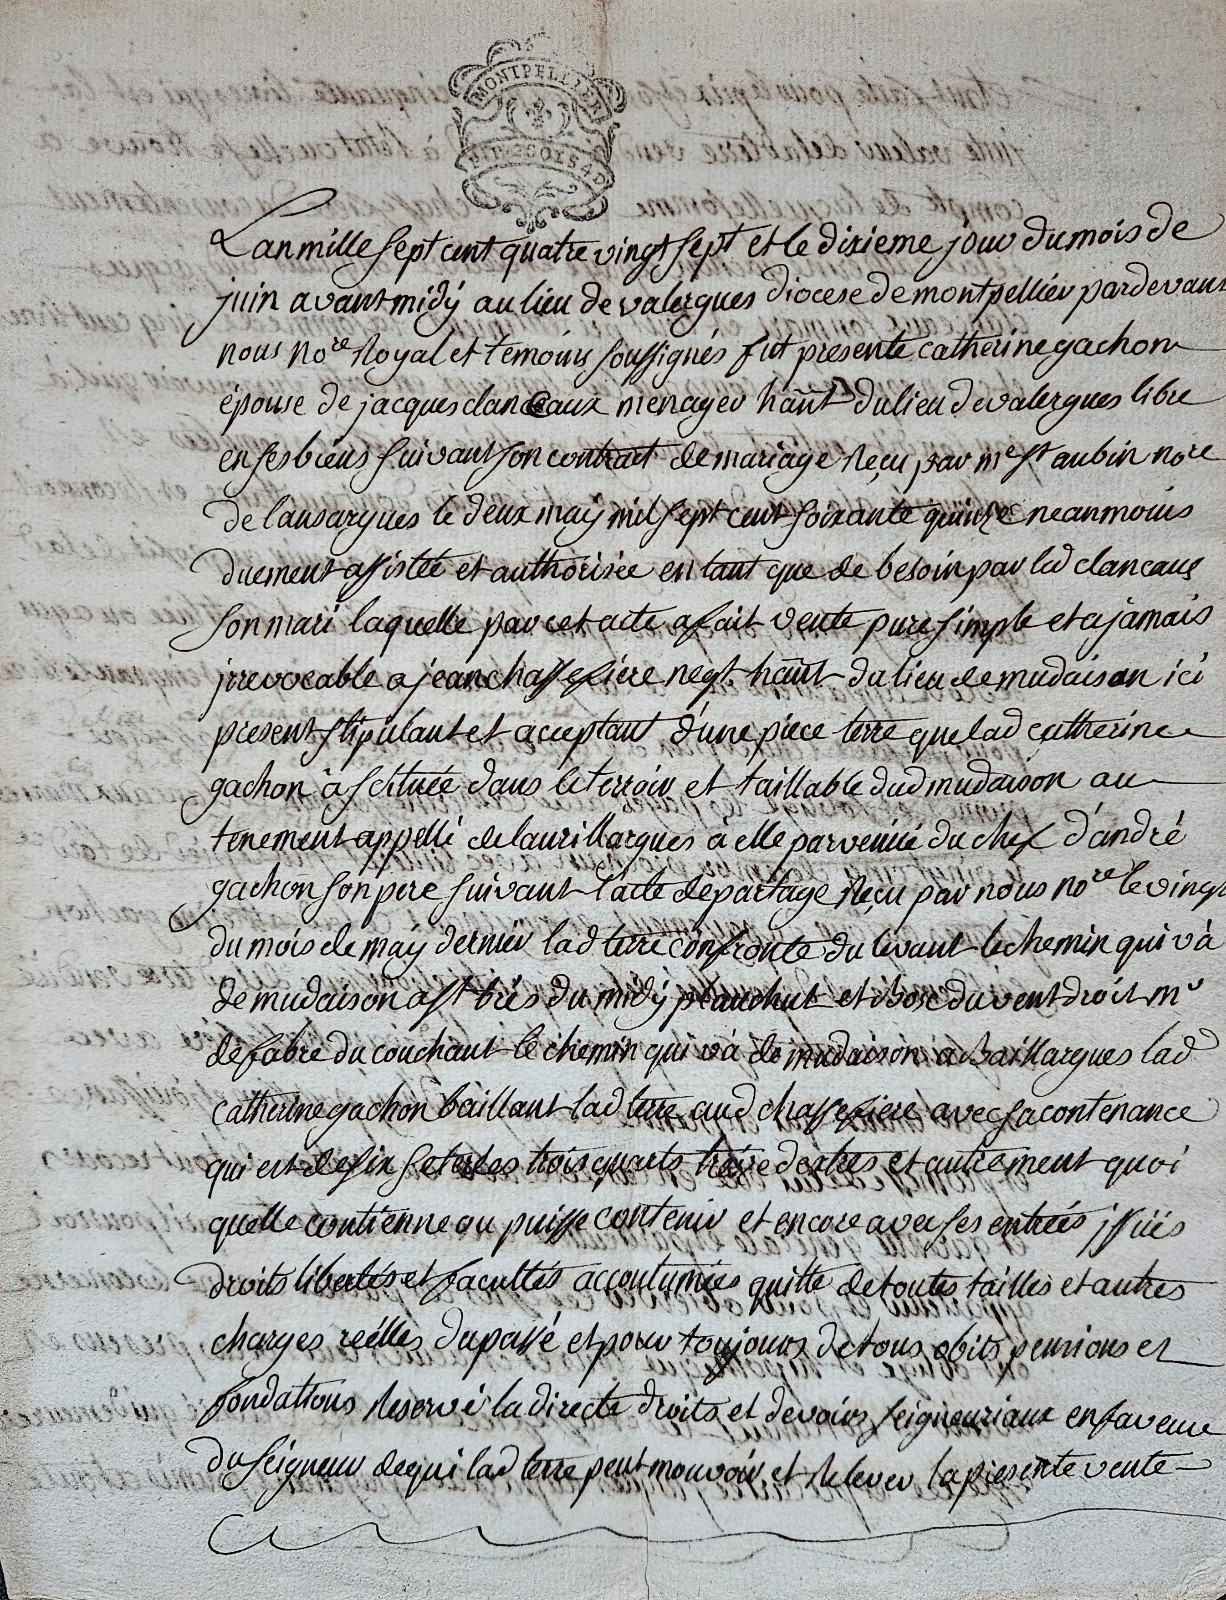 MONTPELLIER
L'an mille sept cent quatre vingt sept et le dixieme jour du mois de
juin avant midy au lieu de valergues diocese de montpellier pardevant
nous no.re Royal et temoins soussignés fut presente catherine gachon
épouse de jacques clancaux menager hãnt du lieu de valergues libre
en ses biens suivant son contrait de mariage reçu par me st aubin nore
de lansargues le deux maÿ mil sept cent soixante quinze neanmoins
duement assistée et authorisée en tant que de besoin par led clancaux
son mari laquelle par cet acte a fait vente pure simple et a jamais
jrrevocable a jean chassefiere negt. hãnt du lieu de mudaison ici
present stipulant et acceptant d'une piece terre que lad catherine
gachon â scituée dans le terroir et taillable dud mudaison au
tenement appellé de laurillargues à elle parvenüe du chef d'andré
gachon son pere suivant l'acte de partage reçu par nous no.re le vingt
du mois de maÿ dernier lad terre confronte du levant le chemin qui và
de mudaison a st brés du midÿ plauchut et bosc du vent droit mr
defabre du couchant le chemin qui và de mudaison a Baillargues lad
catherine gachon baillant lad terre aud chassefiere avec sa contenance
qui est de six seterées trois quarts treize dextres et autrement quoi
quelle contienne ou puisse contenir et encore avec ses entrées jssües
droits libertés et facultés accoutumées quitte de toutes tailles et autres
charges réelles du passé et pour toujours de tous obits pensions et
fondations reservé la directe droits et devoirs seigneuriaux en faveur
du seigneur de qui lad terre peut mouvoir et relever la presente vente